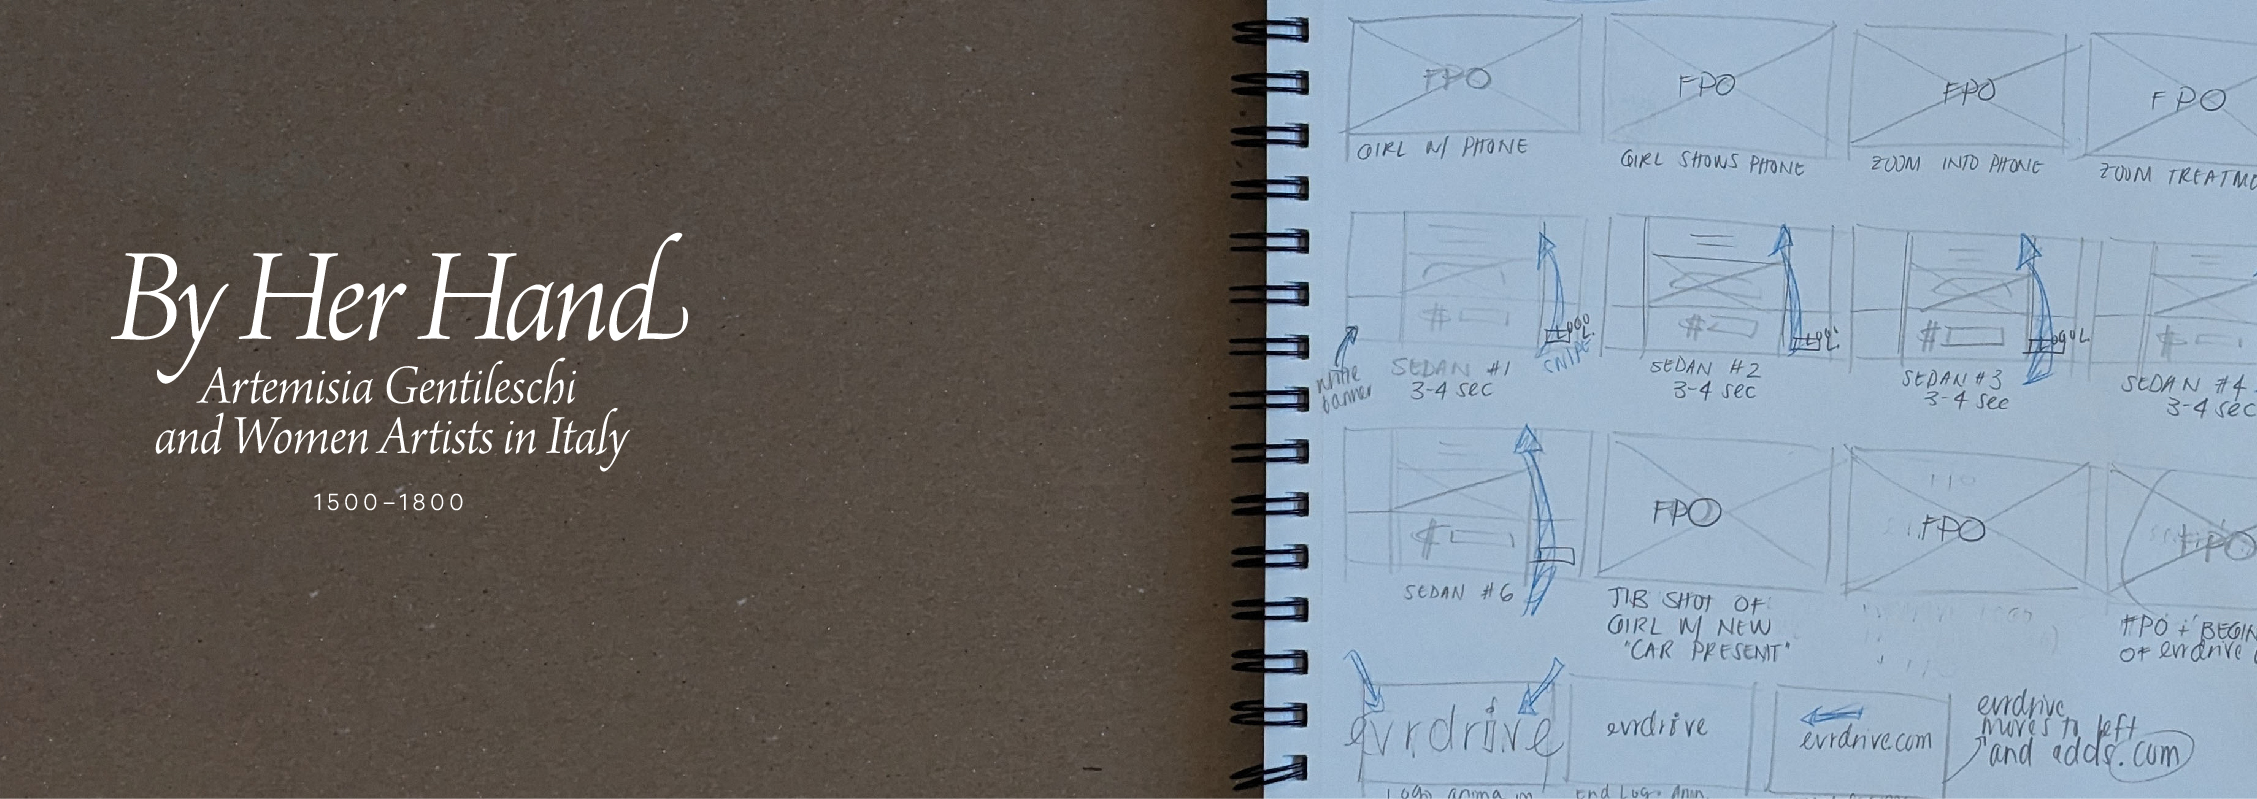 By Her Hand
Artemisia Gentileschi
and Women Artists in Italy
1500–1800
FPO
FPO
FPO
FPO
GIRL W/ PHONE
GIRL SHOWS PHONE
ZOOM INTO PHONE
ZOOM
#
#
#
#
white
banner
SEDAN #1
3-4 sec
SNIPE
SEDAN #2
3-4 sec
SEDAN #3
3-4 sec
SEDAN #4
3-4 sec
#
FPO
FPO
FPO
SEDAN #6
JIB SHOT OF
GIRL W/ NEW
"CAR PRESENT"
FPO + BEGIN
OF evrdrive
evrdrive
evrdrive
evrdrive.com
evrdrive
moves to left
and adds .com
Logo anima in
End Logo Anim.